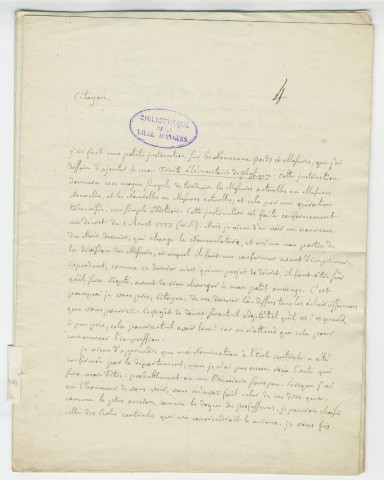 4
Citoyen,
BIBLIOTHEQUE
DE LA
VILLE D'ANGERS
J'ai fait une petite instruction sur les Nouveaux poids et Mesures, que j'ai
dessein d'ajouter à mon Traité élémentaire de physique. Cette instruction
donnera un moyen simple de traduire les Mesures actuelles en Mesures
Nouvelles, et les Nouvelles en Mesures actuelles, et cela par une opération
très-aisée, une simple addition. Cette instruction est faite conformément
au décret du 1 Août 1793 (v.S). Mais je viens d'en voir un nouveau
du Mois dernier, qui change la Nomenclature, et même une partie de
la division des Mesures, et auquel il faut me conformer avant d'imprimer.
Cependant, comme ce dernier n'est qu'un projet de décret, il faut être sûr
qu'il sera adopté, avant de rien changer à mon petit ouvrage. C'est
pourquoi je vous prie, Citoyen, de me donner là-dessus tous les éclaircissemens
que vous pourrez. Ce projet de décret seroit-il adopté tel qu'il est
à peu près, cela pourroit-il avoir lieu? car on n'attend que cela pour
commencer l'impression.
Je viens d'apprendre que ma Nomination à l'École centrale a été
confirmée par le département; mais je n'ai pas encore reçu l'acte qui
fera mon Titre: probablement on me l'enverra. Lorsque j'ai
eu l'honneur de vous voir, vous m'avez fait celui de me dire que,
comme le plus ancien, comme le doyen des professeurs, je pouvois choisir
celle des Écoles centrales qui me conviendroit le mieux. Je vous fis